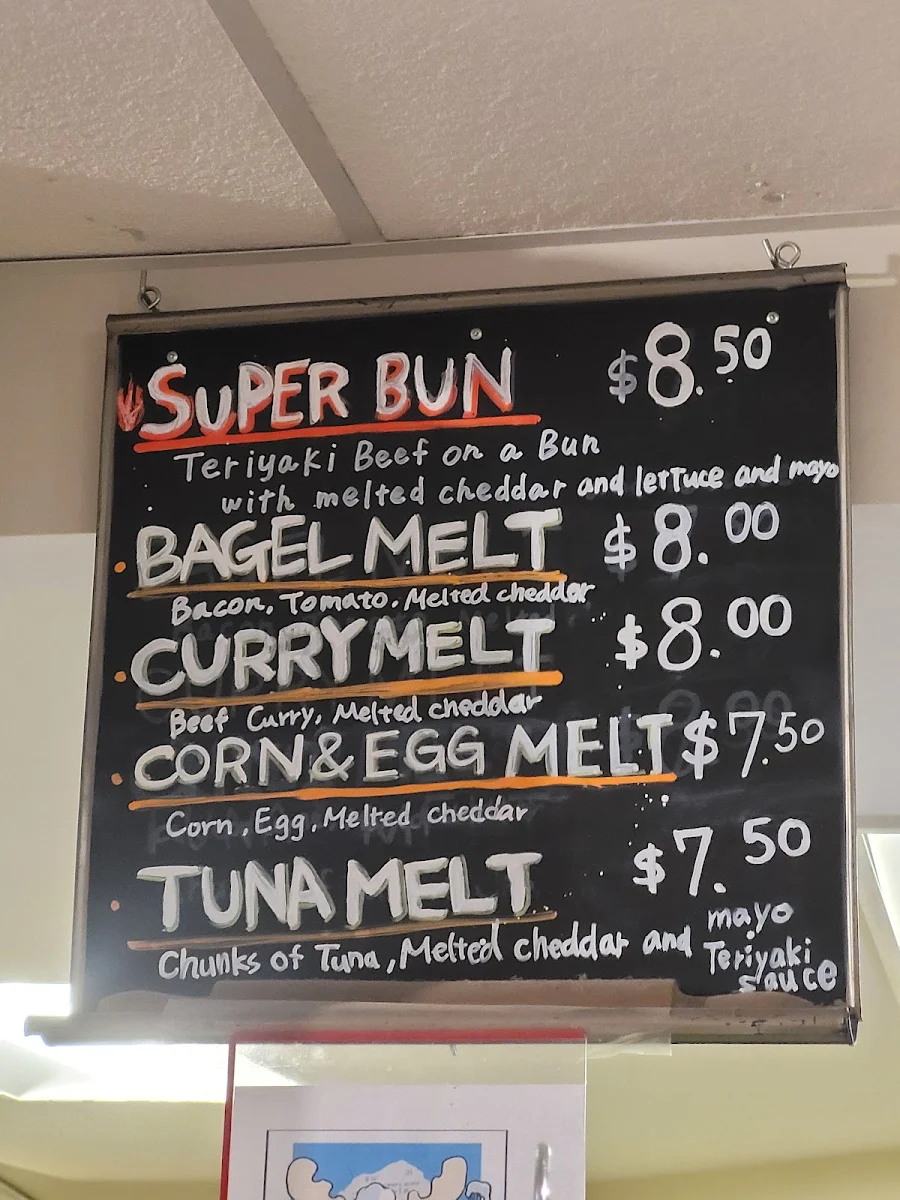 SUPER BUN $8.50
Teriyaki Beef on a Bun
with melted cheddar and lettuce and mayo
BAGEL MELT $8.00
Bacon, Tomato, Melted cheddar
CURRY MELT $8.00
Beef Curry, Melted cheddar
CORN & EGG MELT $7.50
Corn, Egg, Melted cheddar
TUNA MELT $7.50
Chunks of Tuna, Melted cheddar and mayo
Teriyaki
sauce